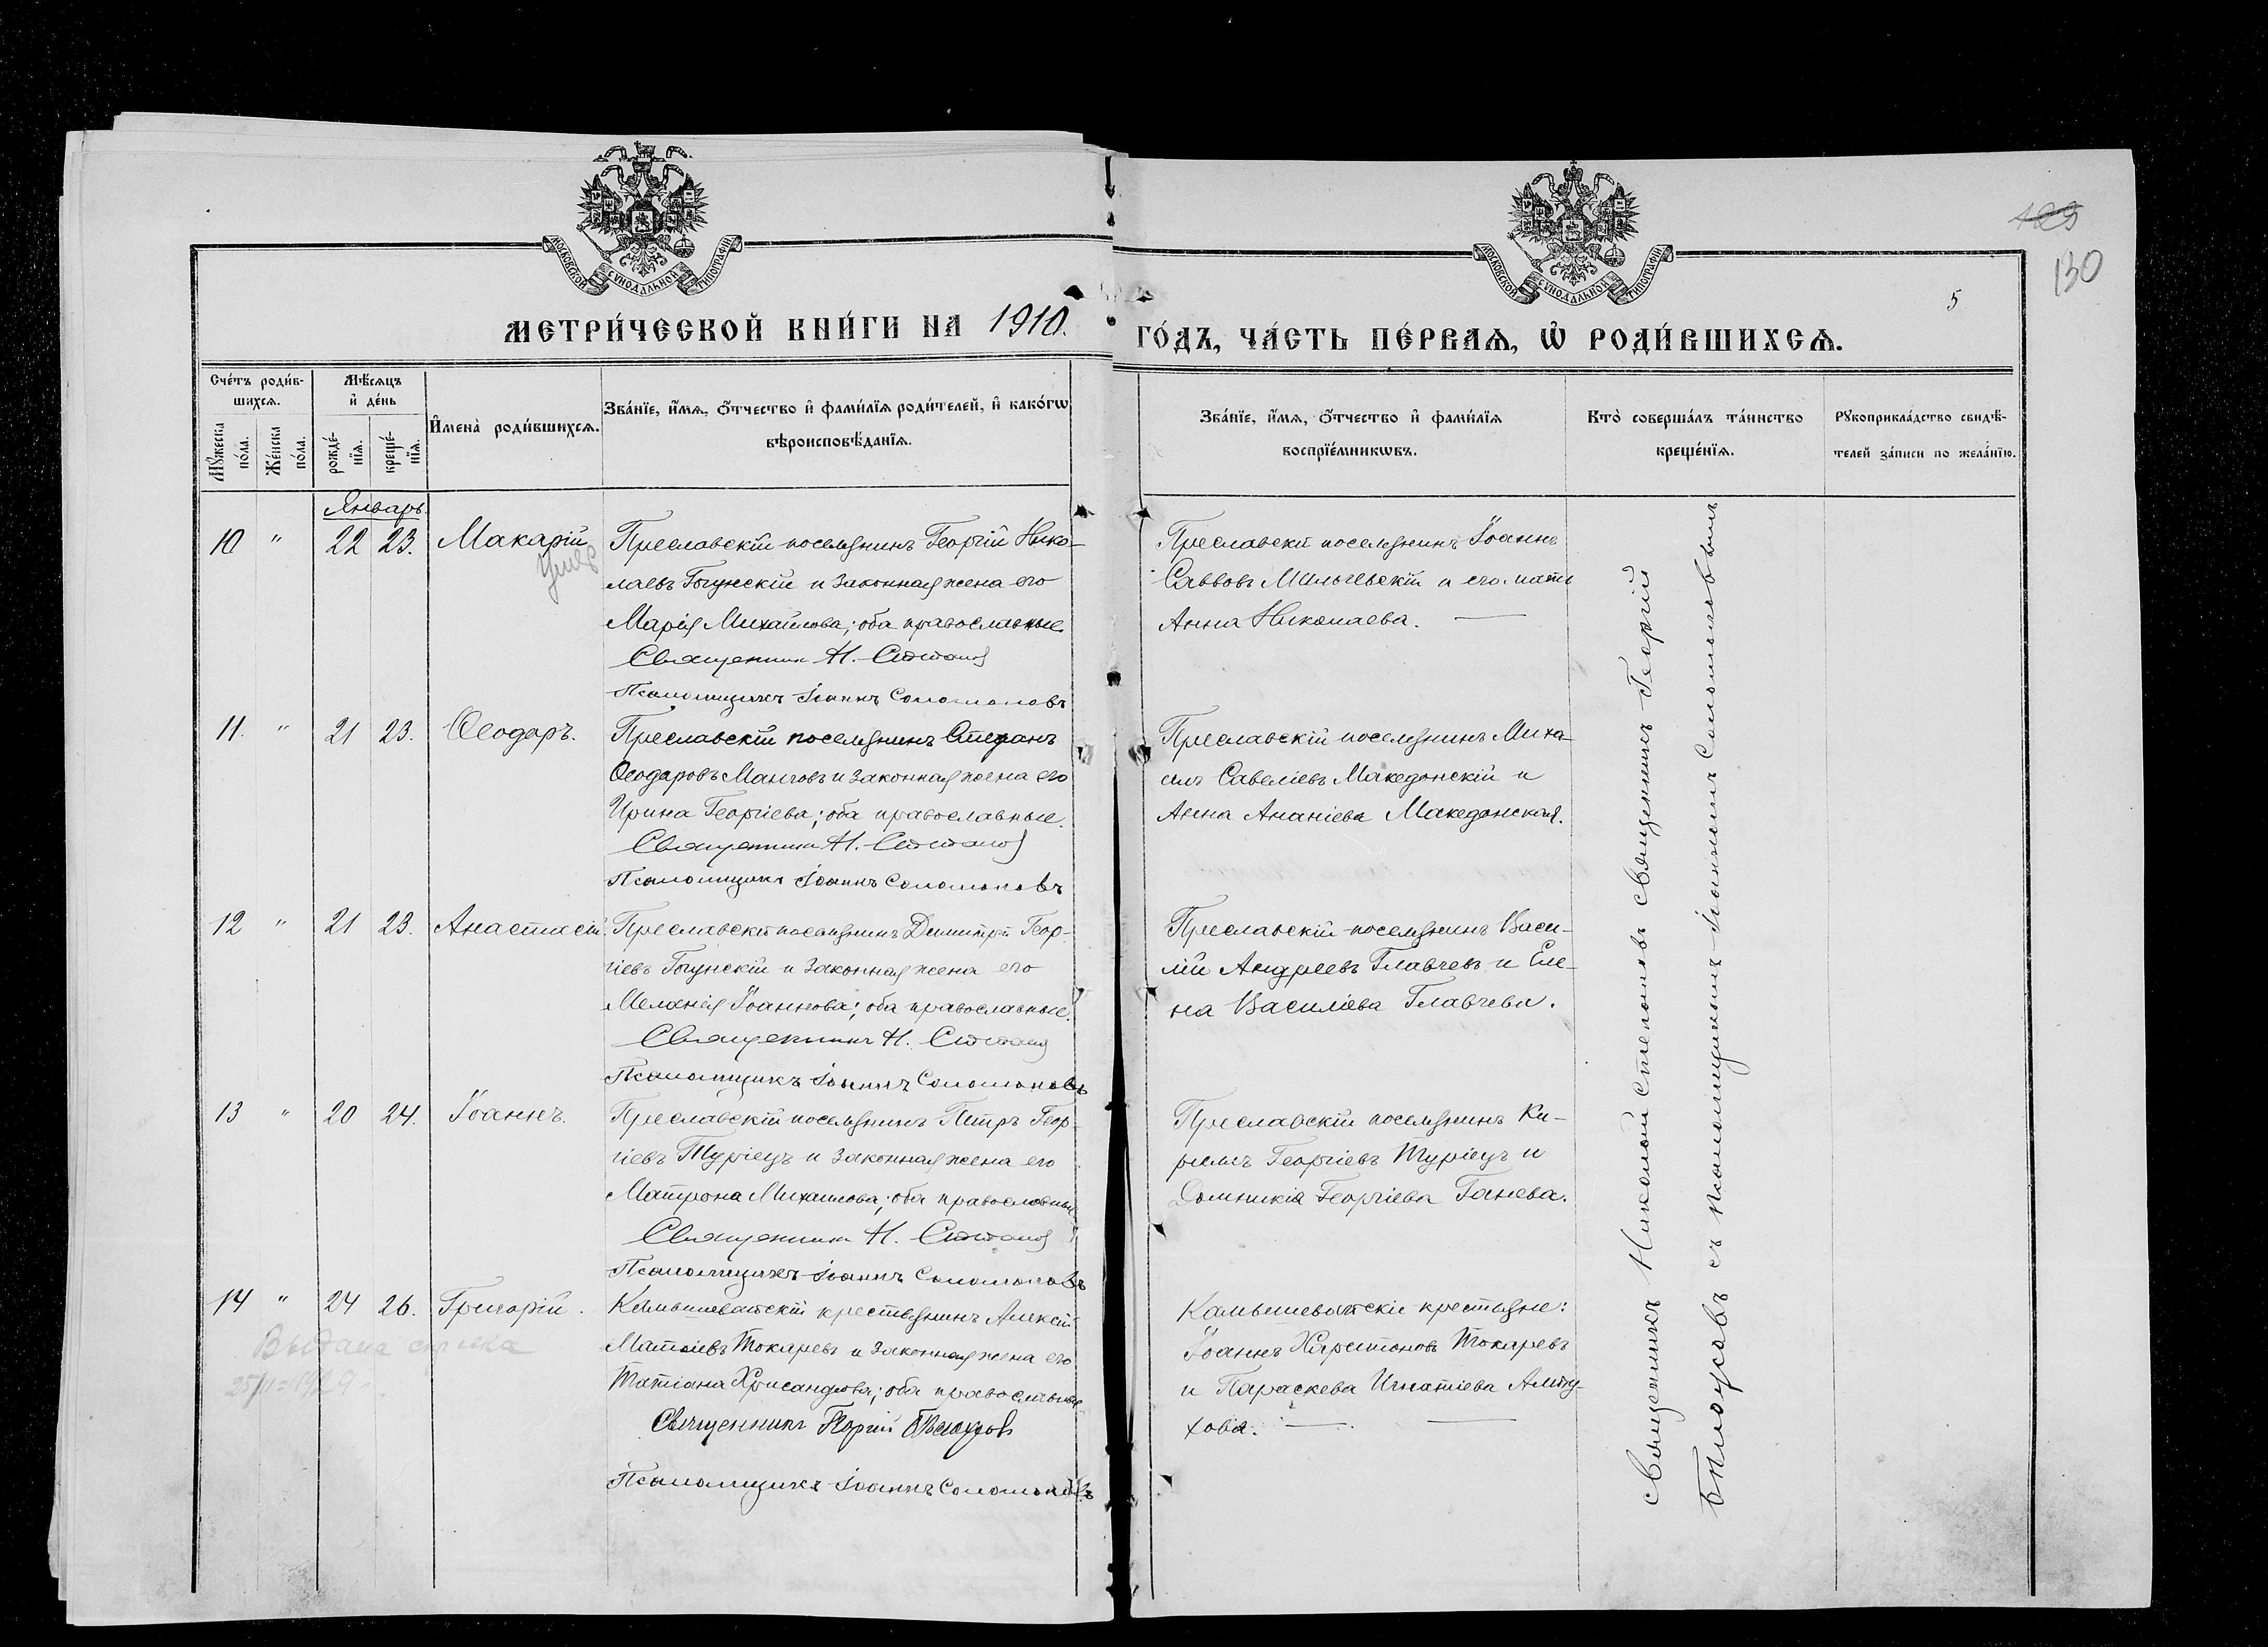 МОСКОВСКОЙ СѴНОДАЛЬНОЙ ТИПОГРАФІИ
МОСКОВСКОЙ СѴНОДАЛЬНОЙ ТИПОГРАФІИ
130
5
МЕТРИ́ЧЕСКОЙ КНИ́ГИ НА 1910.
ГО́ДЪ, ЧА́СТЬ ПЕ́РВАѦ, Ѡ҆ РОДИ́ВШИХСѦ.
Сче́тъ роди́в-
шихсѧ.
Мѣ́сяцъ
и҆ де́нь
Мꙋ́жеска
по́ла.
Же́нска
по́ла.
рожде́-
нїѧ.
креще́-
нїѧ.
И҆мена̀ роди́вшихсѧ.
Зва́нїе, и҆́мѧ, ѻ҆́тчество и҆ фами́лїѧ роди́телей, и҆ како́гѡ
вѣроисповѣ́данїѧ.
Зва́нїе, и҆́мѧ, ѻ҆́тчество и҆ фами́лїѧ
воспрїе́мникѡвъ.
Кто̀ соверша́лъ та́инство
креще́нїѧ.
Рꙋкоприкла́дство свидѣ́-
телей за́писи по жела́нїю.
Январь.
10 " 22 23. Макарій
Умер
Преславскій поселянинъ Георгій Нико-
лаевъ Гогунскій и законная жена его
Марія Михайлова; оба православные.
Священникъ Н. Степановъ
Псаломщикъ Іоаннъ Соломоновъ
Преславскій поселянинъ Іоаннъ
Саввовъ Мильчевскій и его мать
Анна Николаева.
11. " 21 23. Ѳеодоръ.
Преславскій поселянинъ Стефанъ
Ѳеодоровъ Манчовъ и законная жена его
Ирина Георгіева; оба православные.
Священникъ Н. Степановъ
Псаломщикъ Іоаннъ Соломоновъ
Преславскій поселянинъ Миха-
илъ Савеліевъ Македонскій и
Анна Ананіева Македонская.
12 " 21 23. Анастасій.
Преславскій поселянинъ Димитрій Геор-
гіевъ Гогунскій и законная жена его
Меланія Іоаннова; оба православные.
Священникъ Н. Степановъ
Псаломщикъ Іоаннъ Соломоновъ
Преславскій поселянинъ Васи-
лій Андреевъ Главчевъ и Еле-
на Василіева Главчева.
13 " 20 24. Іоаннъ.
Преславскій поселянинъ Петръ Геор-
гіевъ Туріецъ и законная жена его
Матрона Михаилова; оба православные
Священникъ Н. Степановъ
Псаломщикъ Іоаннъ Соломоновъ
Преславскій поселянинъ Ки-
риллъ Георгіевъ Туріецъ и
Домникія Георгіева Ганева.
14 " 24 26. Григорій.
Выдана справка
Камышеватскій крестьянинъ Алексій
Матвіевъ Токаревъ и законная жена его
Татіана Хрисанфова; оба православные.
Священникъ Георгій Бѣлоусовъ
Псаломщикъ Іоаннъ Соломоновъ
Камышеватскіе крестьяне:
Іоаннъ Харитоновъ Токаревъ
и Параскева Игнатіева Алту-
хова.
Священникъ Николай Степановъ священникъ Георгій
Бѣлоусовъ съ псаломщикомъ Іоанномъ Соломоновымъ